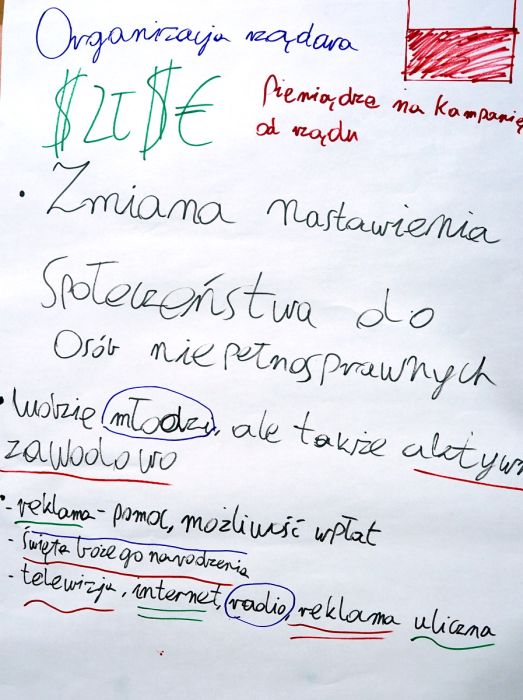 Organizacja rządowa
$ zł $ €
Pieniądze na kampanię
od rządu
• Zmiana nastawienia
Społeczeństwa do
Osób niepełnosprawnych
• ludzie młodzi, ale także aktywn
zawodowo
• - reklama - pomoc, możliwość wpłat
- święta bożego narodzenia
- telewizja, internet, radio, reklama uliczna